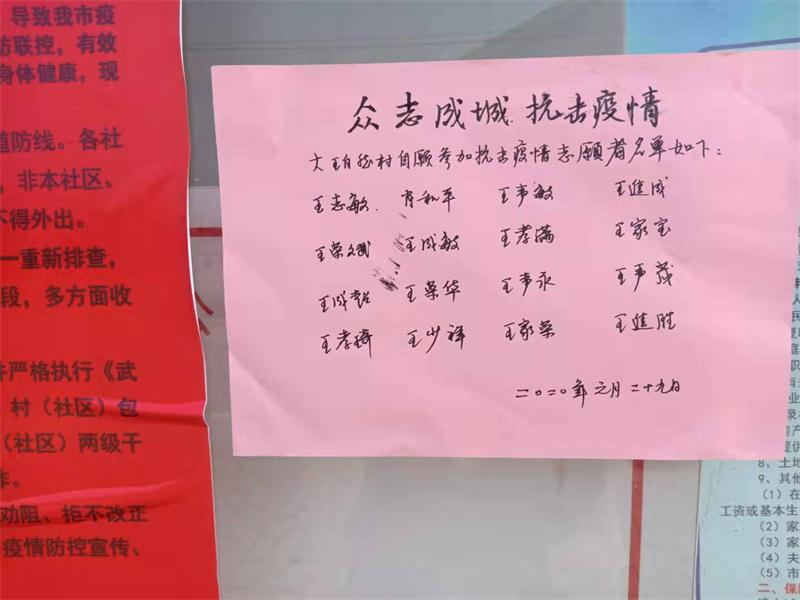 导致我市疫
防联控，有效
身体健康，现
道防线。各社
，非本社区、
不得外出。
一重新排查，
段，多方面收
并严格执行《武
村（社区）包
（社区）两级干
作。
劝阻、拒不改正
疫情防控宣传、
众志成城 抗击疫情
村自愿参加抗击疫情志愿者名单如下：
王志敏 肖和平 王声敏 王进成
王荣斌 王成敏 王孝满 王家宝
王荣华 王声永 王声茂
王少祥 王家荣 王进胜
二〇二〇年元月二十九日
8、土地
9、其他
（1）在
工资或基本生
（2）家
（3）家
（4）夫
（5）市
二、保